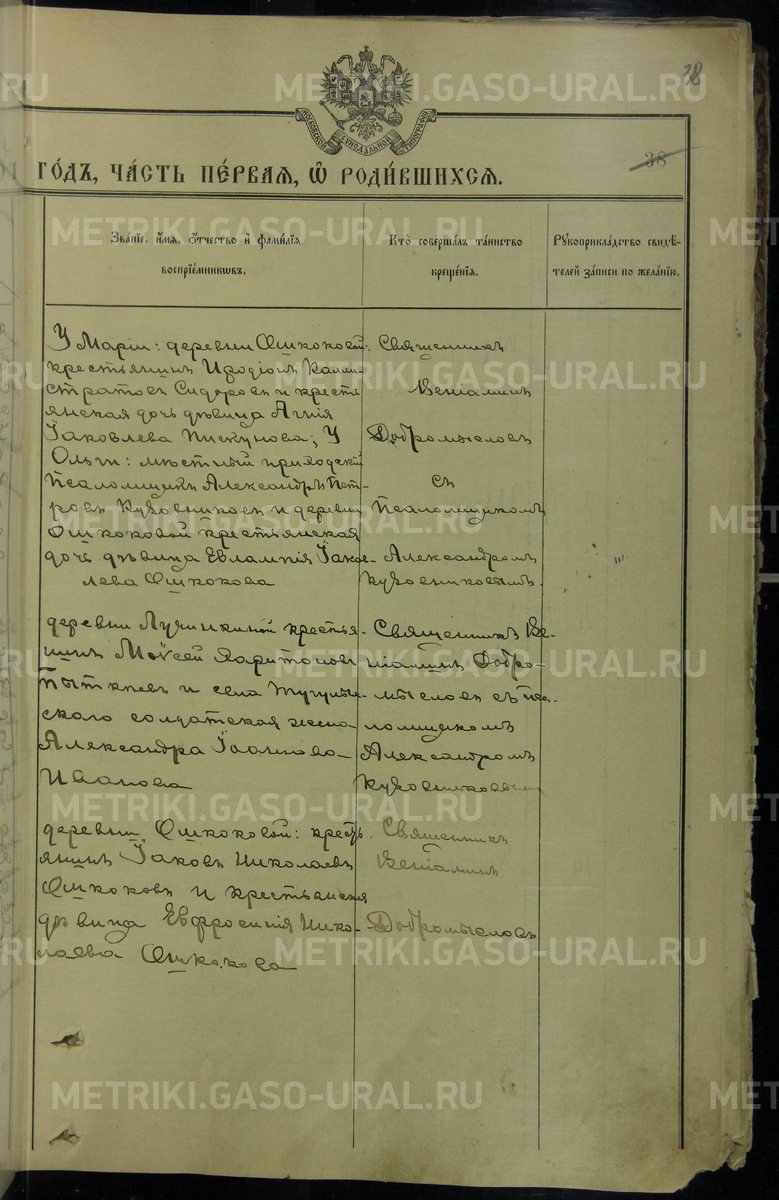 38
МОСКОВСКОЙ СѴНОДАЛЬНОЙ ТИПОГРАФІИ
38
ГО́ДЪ, ЧА́СТЬ ПЕ́РВАѦ, Ѡ҆ РОДИ́ВШИХСѦ.
Зва́нїе, и҆́мѧ, ѻ҆́тчество и҆ фами́лїѧ
воспрїе́мникѡвъ.
Кто̀ соверша́лъ та́инство
креще́нїѧ.
Рꙋкоприкла́дство свидѣ́-
телей за́писи по жела́нїю.
У Маріи: деревни Ошкоковой:
крестьянинъ Иродіонъ Калли-
стратовъ Сидоровъ и кресть
янская дочь дѣвица Агнія
Іаковлева Пискунова; У
Ольги: мѣстный приходскій
Псаломщикъ Александръ Пет-
ровъ Кузовниковъ и деревни
Ошкоковой крестьянская
дочь дѣвица Евлампія Іаков-
лева Ошкокова
Священникъ
Веніаминъ
Добромысловъ
съ
Псаломщикомъ
Александромъ
Кузовниковымъ.
деревни крестья-
нинъ Моѵсей Харитоновъ
Пыткеевъ и села Тугулым-
скаго солдатская жена
Александра Іоаннова
Иванова
Священникъ Ве-
ніаминъ Добро-
мысловъ съ пса-
ломщикомъ
Александромъ
Кузовниковымъ
деревни Ошкоковой: кресть-
янинъ Іаковъ Николаевъ
Ошкоковъ и крестьянская
дѣвица Евфросинія Нико-
лаева Ошкокова
Священникъ
Веніаминъ
Добромысловъ
METRIKI.GASO-URAL.RU